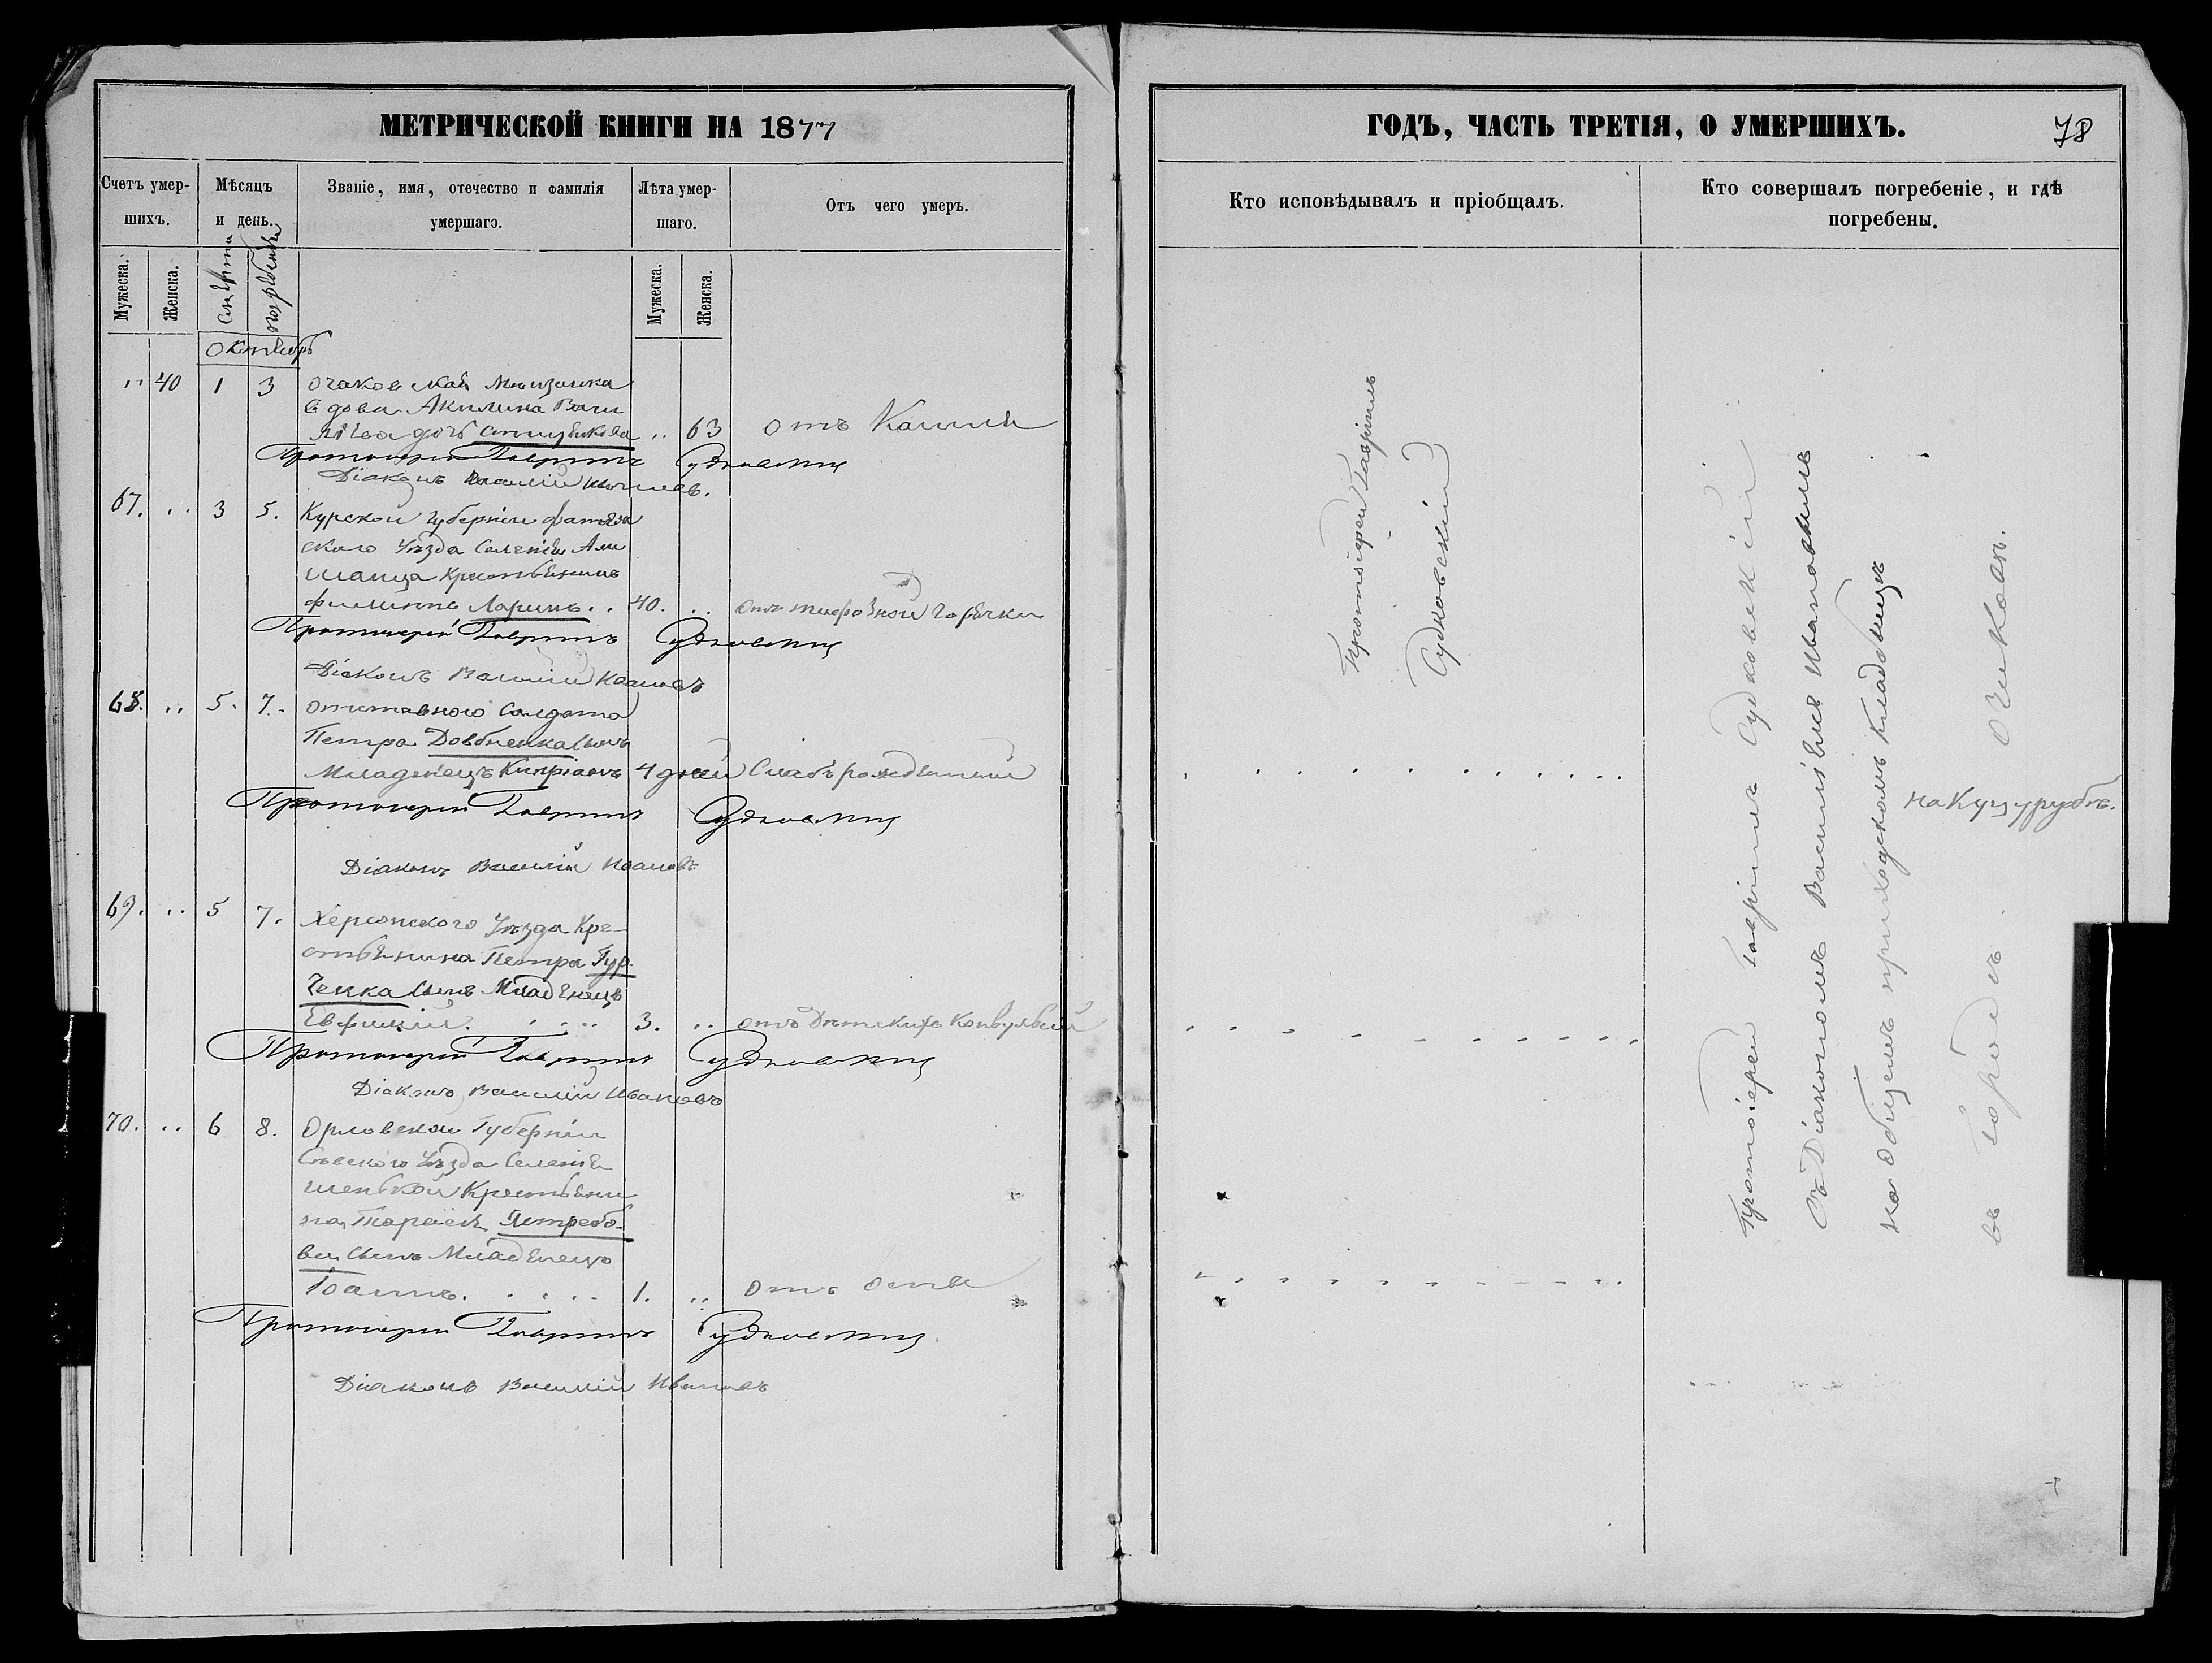 МЕТРИЧЕСКОЙ КНИГИ НА 1877
Счетъ умер-
шихъ.
Мѣсяцъ
и день.
Званіе, имя, отечество и фамилія
умершаго.
Лѣта умер-
шаго.
Отъ чего умеръ.
Мужеска.
Женска.
смерти
погребенія
Мужеска.
Женска.
октябрь
" 40 1 3 очаковская мѣщанка
вдова Акилина Васи
льева дочь .. 63 отъ Кашля
Протоіерей Гавріилъ Судковскій
Діаконъ Василій Ивановъ.
67. .. 3 5. Курской губерніи Фатеж
скаго Уѣзда Селенія
крестьянинъ
Филиппъ Ларинъ .. 40. .. отъ тифозной горячки
Протоіерей Гавріилъ Судковскій
Діаконъ Василій Ивановъ
68. .. 5. 7. отставного Солдата
Петра Довбненка сынъ
Младенецъ Кипріанъ 4 дней Слабърожденный
Протоіерей Гавріилъ Судковскій
Діаконъ Василій Ивановъ
69. .. 5 7. Херсонского Уѣзда Кре-
стьянина Петра Гур-
ченка сынъ Младенецъ
Евфимій. 3. .. отъ Дѣтскихъ Конвульсій
Протоіерей Гавріилъ Судковскій
Діаконъ Василій Ивановъ
70. .. 6 8. Орловской Губерніи
Сѣвского Уѣзда Селенія
Крестьяни
на Тарасія Ястребо-
ва сынъ Младенецъ
Іоаннъ. 1. .. отъ оспы
Протоіерей Гавріилъ Судковскій
Діаконъ Василій Ивановъ
ГОДЪ, ЧАСТЬ ТРЕТІЯ, О УМЕРШИХЪ.
78
Кто исповѣдывалъ и пріобщалъ.
Кто совершалъ погребеніе, и гдѣ
погребены.
Протоіерей Гавріилъ
Судковскій
Протоіерей Гавріилъ Судковскій
Съ Діакономъ Василіемъ Ивановымъ
на общемъ приходскомъ кладбищѣ
въ городѣ Очаковѣ.
на Куцурубѣ.